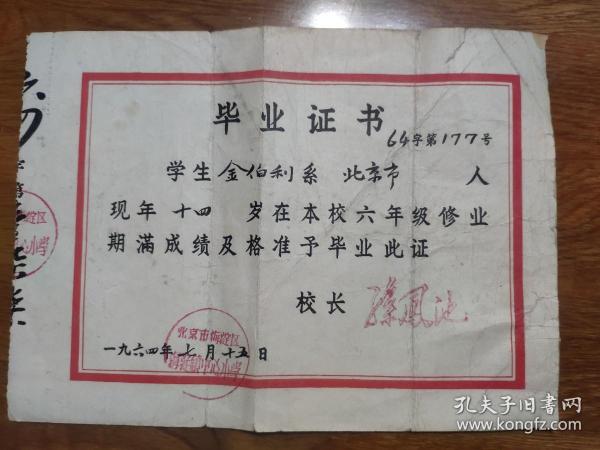 毕业证书
64字第177号
学生金伯利系 北京市 人
现年十四 岁在本校六年级修业
期满成绩及格准予毕业此证
校长
一九六四年七月十五日
北京市海淀区
中心小学
孔夫子旧书网
www.kongfz.com